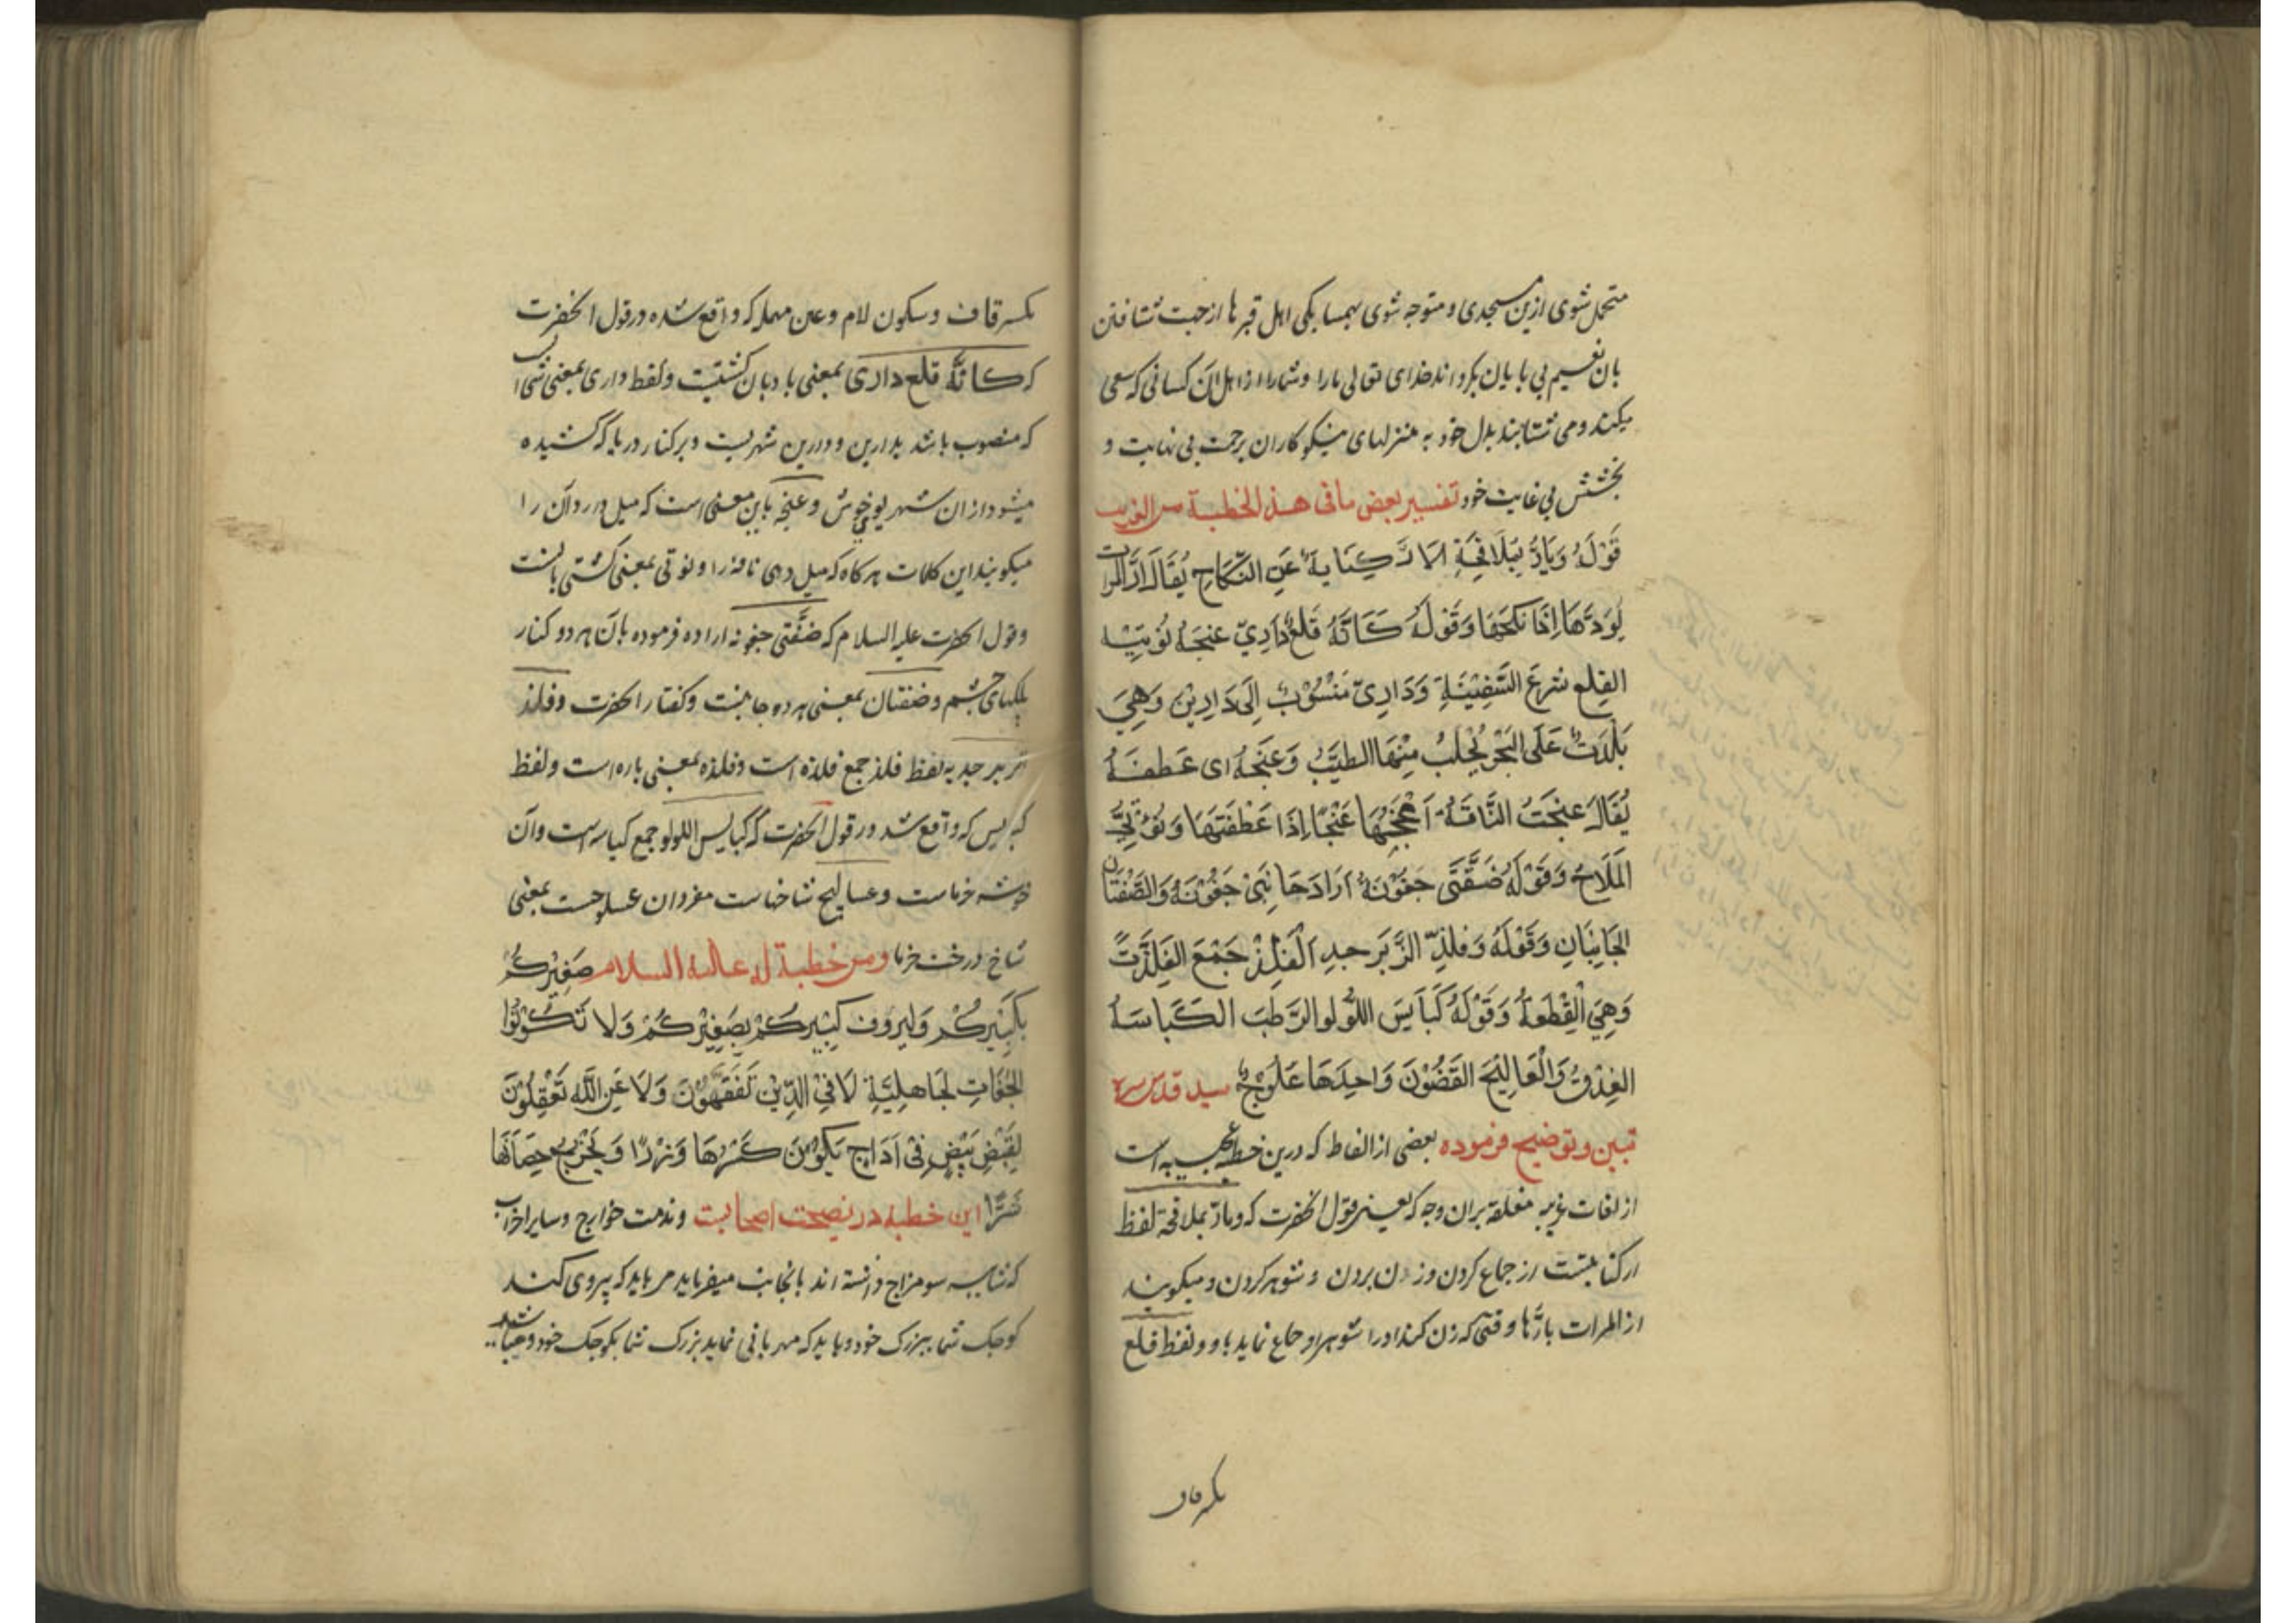 متحمل شوی ازین مسجدی و متوجه شوی بهمسایکی اهل قبرها از جهت شتافتن
بان نعیم بی پایان بکرداند خدای تعالی ما را و شما را از اهل آن کسانی که سعی
میکنند و می شتابند بدل خود به منزلهای نیکوکاران برحمت بی نهایت و
بخشش بی غایت خود تفسیر بعض ما فی هذه الخطبة من الغریب
قَوْلُهُ وَیَارُّ بِمَلَاقِحَةٍ الَارُّ کِنَایَةٌ عَنِ النِّکَاحِ یُقَالَ ارَّ المراة
یَؤُرَّهَا اِذَا نَکَحَهَا وَقَوْلُهُ کَاَنَّهُ قَلْعُ دَارِیٍّ عنَجَهُ نُوتِیّه
القِلع شرعَ السَّفِیْنَةِ وَدَارِیّ مَنْسُوْبٌ اِلَی دَارِیْنَ وَهِیَ
بَلْدَتٌ عَلَی البَحْرِ یُجْلَبُ مِنْهَا الطیّبُ وَعَنَجَهُ ای عَطَفَهُ
یُقَالَ عنجَتُ النَّاقَةَ اَعْنُجُهَا عَنْجًا اِذَا عَطَفْتَهَا وَنُوْتِیُّ
المَلَاحُ وَقَوْلَهُ ضَفَّتَی جَفُوْنَهُ اَرَادَ جَانِبَیْ جَفُوْنَهُ وَالضَّفَتَان
الجَانِبَانِ وَقَوْلَهُ وَفِلَذِ الزَّبَرجدِ اَلْفِلَذْ جَمْعَ الفِلْذَتَ
وَهِیَ الْقِطْعَةُ وَقَوْلَهُ کَبَایَسَ اللُّوْلو الرَّطبَ الکَبَاسَهُ
العِذْقُ وَالْعَسَالِیْجَ الغَصُوْنَ وَاحِدَهَا عَسلُوْجٌ سید قدس سره
تبیین و توضیح فرموده بعضی از الفاظ که درین خطبه عجیبه است
از لغات غریبه مغلقه بران وجه که یعنی قول انحضرت که و یارّ بملاقحة لفظ
ار کنایتست از جماع کردن و زن بردن و شوهر کردن و میکویند
ار المرات یارّها وقتی که زن کند او را شوهر او و جماع نماید باو و لفظ قلع
بکسر قاف
بکسر قاف و سکون لام و عین مهمله که واقع شده در قول انحضرت
که کانّه قلع داری بمعنی بادبان کشتیست و لفظ داری بمعنی شی است
که منصوب باشد بدارین و دارین شهریست و بر کنار دریا که کشیده
میشود ازان شهر بوی خوش و عنجه باین معنی است که میل درد آن را
میکویند این کلمات هر کاه که میل دهی ناقه را و نوتی بمعنی کشتی بانست
و قول انحضرت علیه السلام که ضفّتی جفونه اراده فرموده بان هر دو کنار
پلکهای چشم و ضفتان بمعنی هر دو جانبست و کفتار انحضرت و فلذ
الزبرجد به لفظ فلذ جمع فلذه است و فلذه بمعنی پاره است و لفظ
کبایس که واقع شد در قول انحضرت که کبایس اللولو جمع کباسه است و آن
خوشه خرماست و عسالیج شاخهاست مفرد ان عسلوجست بمعنی
شاخ درخت خرما ومن خطبة له علیه السلام صَغِیْرکُمْ
بِکَبِیْرِکُمْ وَلیروف کَبِیْرِکُمْ بِصَغِیْرِکُمْ وَلا تَکُوْنُوْا
الجُفَاتِ لجَاهِلِیَّةِ لَا فِیْ الدِّیْنِ تَفَقَهُوْنَ وَلَا عَنِ اللَّهِ تَعْقِلُوْنَ
لِقَیْضِ بَیْضٍ فِیْ اَدَاجٍ یَکُوْنَ کَسْرُهَا وَزْرًا وَیُخْرِجُ حِضَانَهَا
شَرًّا این خطبه در نصیحت اصحابست و مذمت خوارج و سایر احزاب
که شایبه سو مزاج داشته اند بانجانب میفرماید مر باید که پیروی کند
کوچک شما ببزرک خود و باید که مهربانی نماید بزرک شما بکوچک خود و میباشید